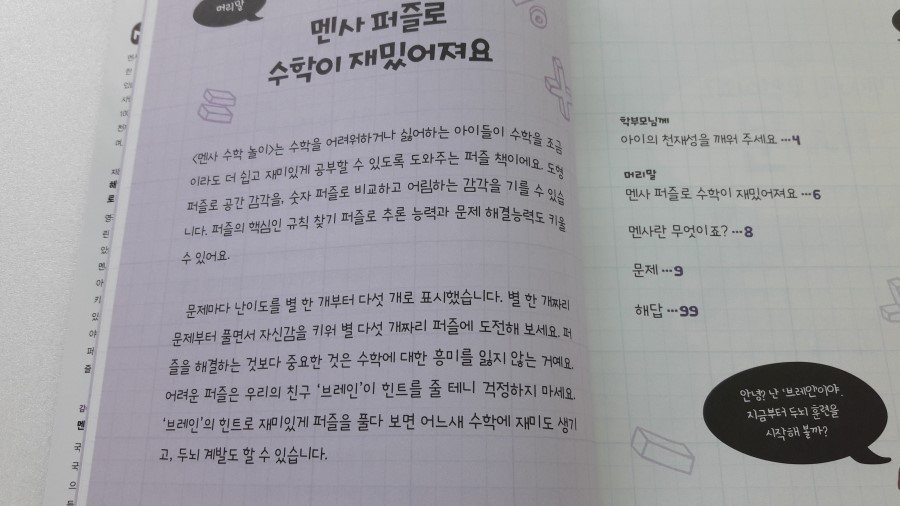 머리말
멘사 퍼즐로
수학이 재밌어져요
<멘사 수학 놀이>는 수학을 어려워하거나 싫어하는 아이들이 수학을 조금
이라도 더 쉽고 재미있게 공부할 수 있도록 도와주는 퍼즐 책이에요. 도형
퍼즐로 공간 감각을, 숫자 퍼즐로 비교하고 어림하는 감각을 기를 수 있습
니다. 퍼즐의 핵심인 규칙 찾기 퍼즐로 추론 능력과 문제 해결능력도 키울
수 있어요.
문제마다 난이도를 별 한 개부터 다섯 개로 표시했습니다. 별 한 개짜리
문제부터 풀면서 자신감을 키워 별 다섯 개짜리 퍼즐에 도전해 보세요. 퍼
즐을 해결하는 것보다 중요한 것은 수학에 대한 흥미를 잃지 않는 거예요.
어려운 퍼즐은 우리의 친구 '브레인'이 힌트를 줄 테니 걱정하지 마세요.
'브레인'의 힌트로 재미있게 퍼즐을 풀다 보면 어느새 수학에 재미도 생기
고, 두뇌 계발도 할 수 있습니다.
학부모님께
아이의 천재성을 깨워 주세요 ···4
머리말
멘사 퍼즐로 수학이 재밌어져요 ···6
멘사란 무엇이죠? ···8
문제 ···9
해답 ···99
안녕? 난 '브레인'이야.
지금부터 두뇌 훈련을
시작해 볼까?